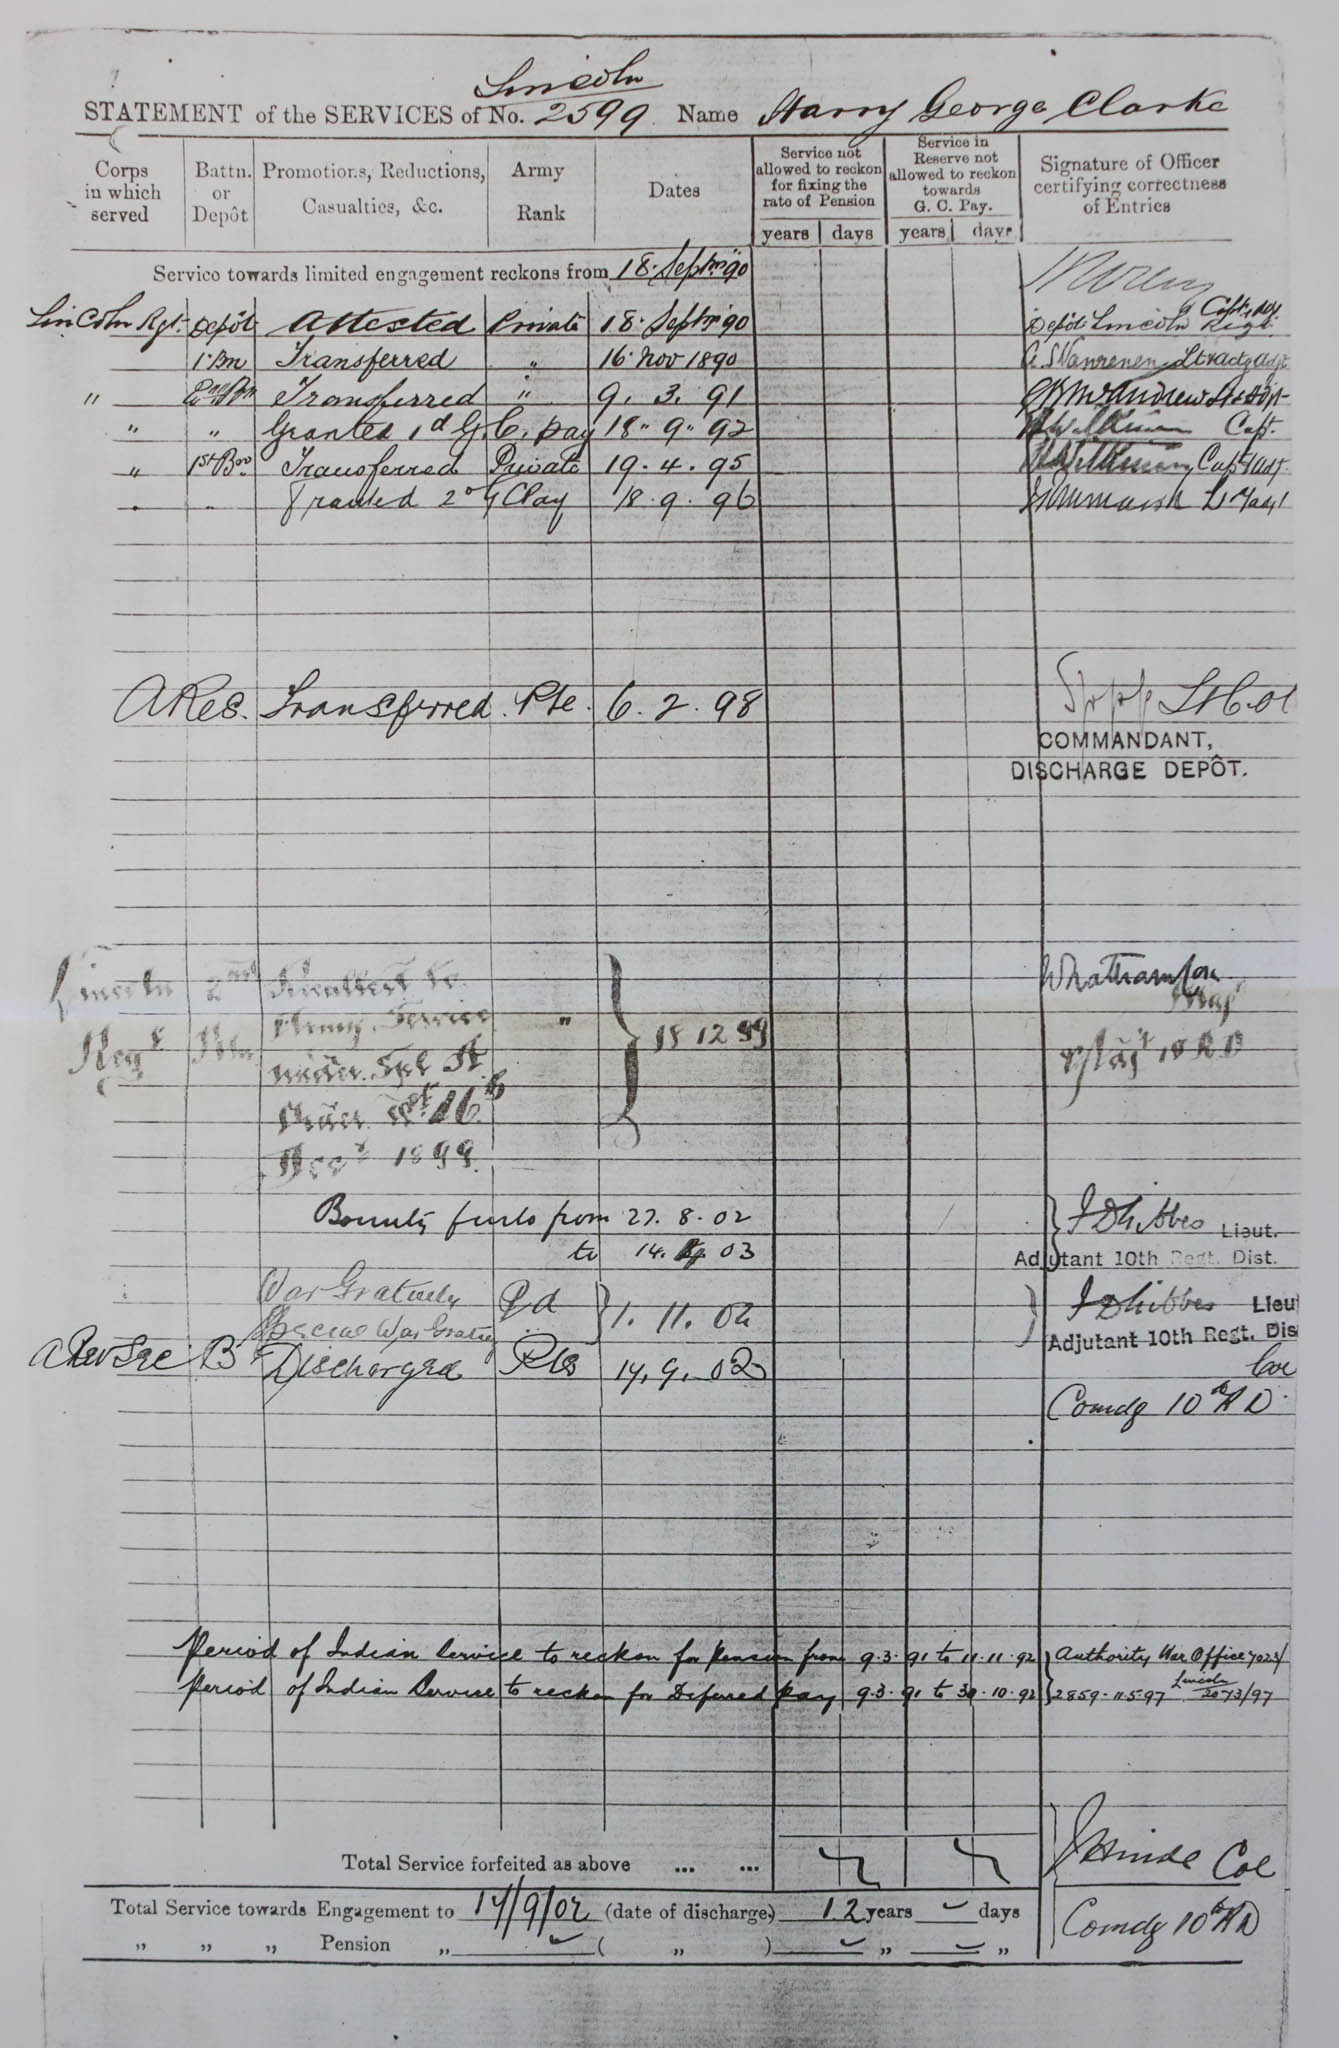 Lincoln
STATEMENT of the SERVICES of No. 2599 Name Harry George Clarke
Corps in which served
Battn. or Depôt
Promotions, Reductions, Casualties, &c.
Army Rank
Dates
Service not allowed to reckon for fixing the rate of Pension
Service in Reserve not allowed to reckon towards G. C. Pay.
Signature of Officer certifying correctness of Entries
years days years days
Service towards limited engagement reckons from 18. Septmr 90
Lincoln Rgt. Depôt Attested Private 18. Septmr 90 Depôt Lincoln Regt.
1. Bn Transferred " 16. Nov 1890
" 2nd Bn Transferred " 9. 3. 91
" " Granted 1d G. C. pay 18" 9" 92 Capt.
" 1st Bn Transferred Private 19. 4. 95 Capt & Adjt
" " Granted 2d G C Pay 18. 9. 96
A Res. Transferred. Pte. 6. 2. 98 Lt Col
COMMANDANT,
DISCHARGE DEPÔT.
Lincoln 2nd
Army Service
Regt Bn " 18 12 99
under Spl A.
Order 16th
Decr 1899.
Bounty furlo from 27. 8. 02 Lieut.
to 14. 03 Adjutant 10th Regt. Dist.
War Gratuity Pd 1. 11. 02 Lieut
Special War Gratuity Adjutant 10th Regt. Dis
B Discharged Pte 17. 9. 02 Col
Comdg 10th R D.
Period of Indian Service to reckon for Pension from 9. 3. 91 to 11. 11. 92 Authority War Office 7023/
Period of Indian Service to reckon for Deferred pay 9. 3. 91 to 30. 10. 92 2859. 11.5.97 Lincoln 2073/97
Total Service forfeited as above ... ...
Hinde Col
Total Service towards Engagement to 17/9/02 (date of discharge) 12 years days
Comdg 10th R D
" " " Pension " ( " ) " "